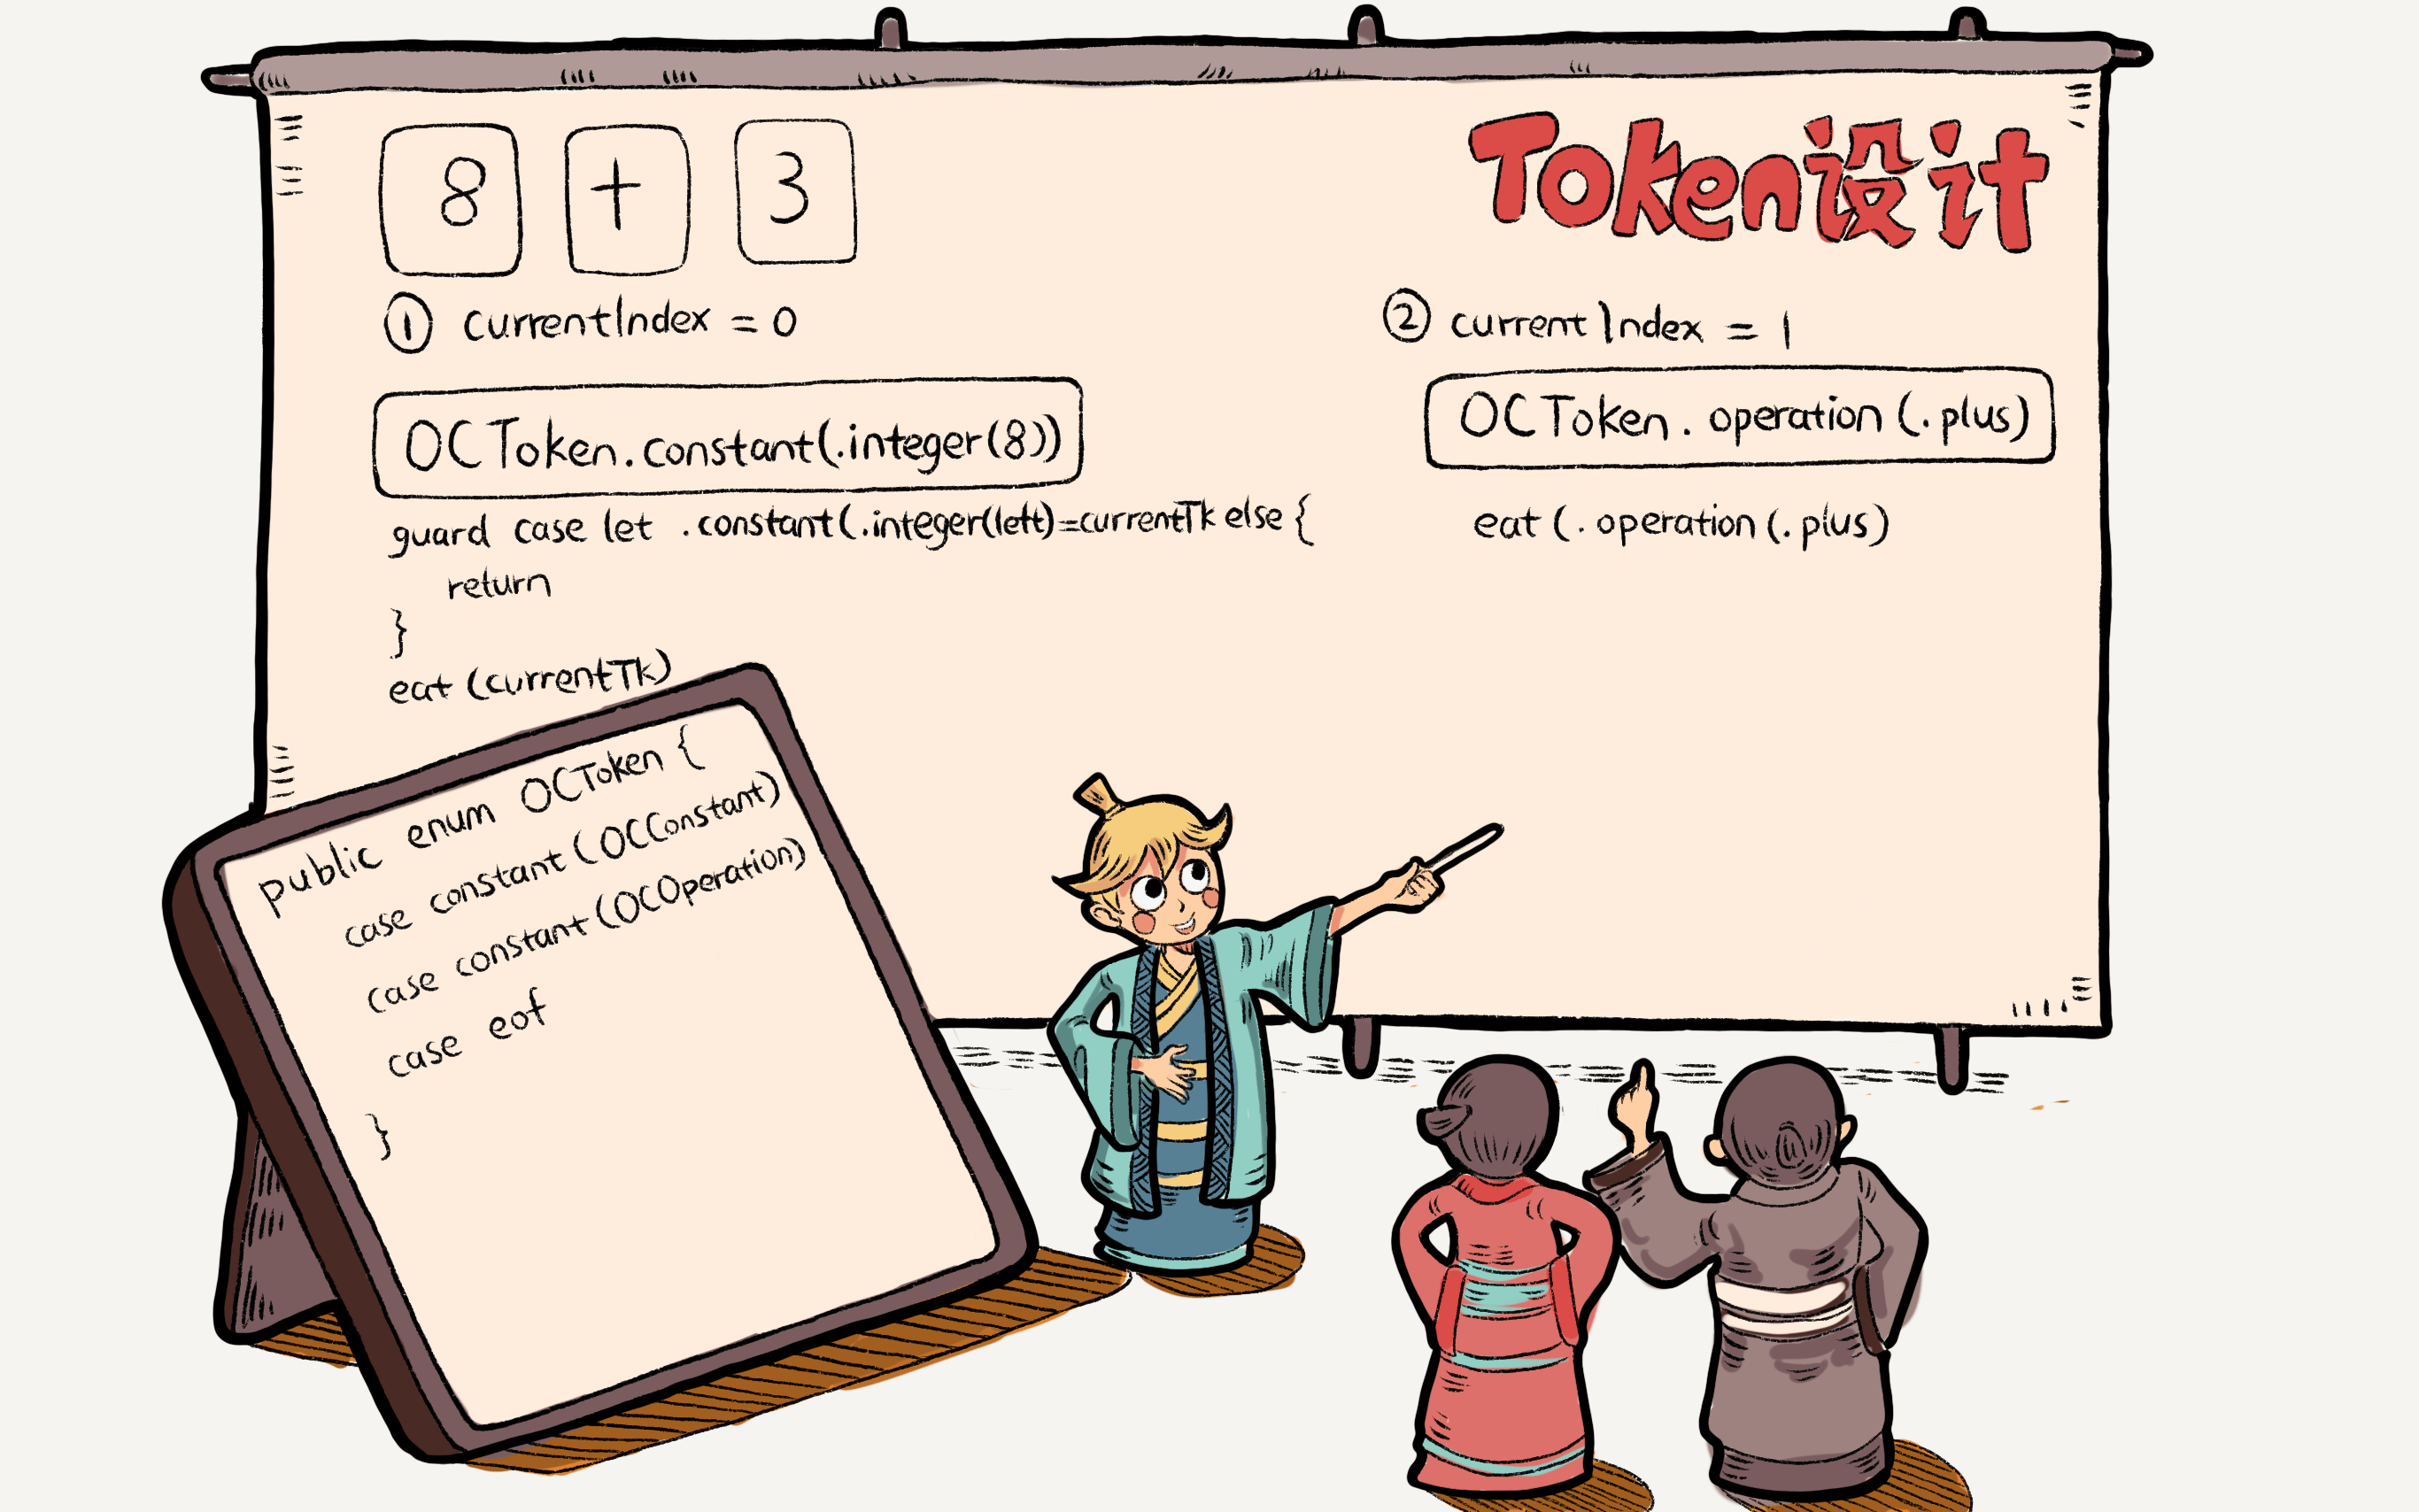 8 + 3
Token设计
① currentIndex = 0
OCToken.constant(.integer(8))
guard case let .constant(.integer(left)=currentTk else {
return
}
eat (currentTk)
② currentIndex = 1
OCToken.operation(.plus)
eat (.operation(.plus)
public enum OCToken {
case constant (OCConstant)
case constant (OCOperation)
case eof
}